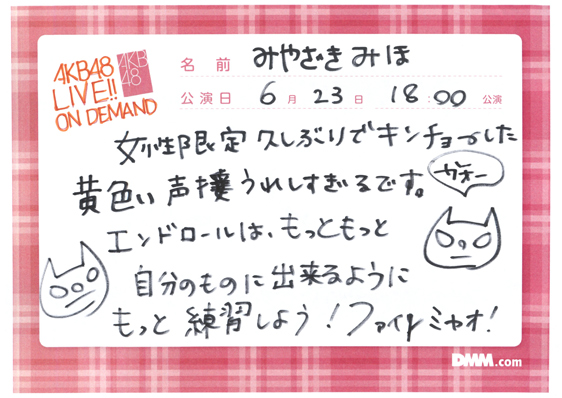 AKB48
LIVE!!
ON DEMAND
AKB
48
名前 みやざきみほ
公演日 6月23日 18:00公演
女性限定 久しぶりでキンチョーした
黄色い声援うれしすぎるです。
ガオー
エンドロールは、もっともっと
自分のものに出来るように
もっと練習しよう!ファイツミャオ!
DMM.com